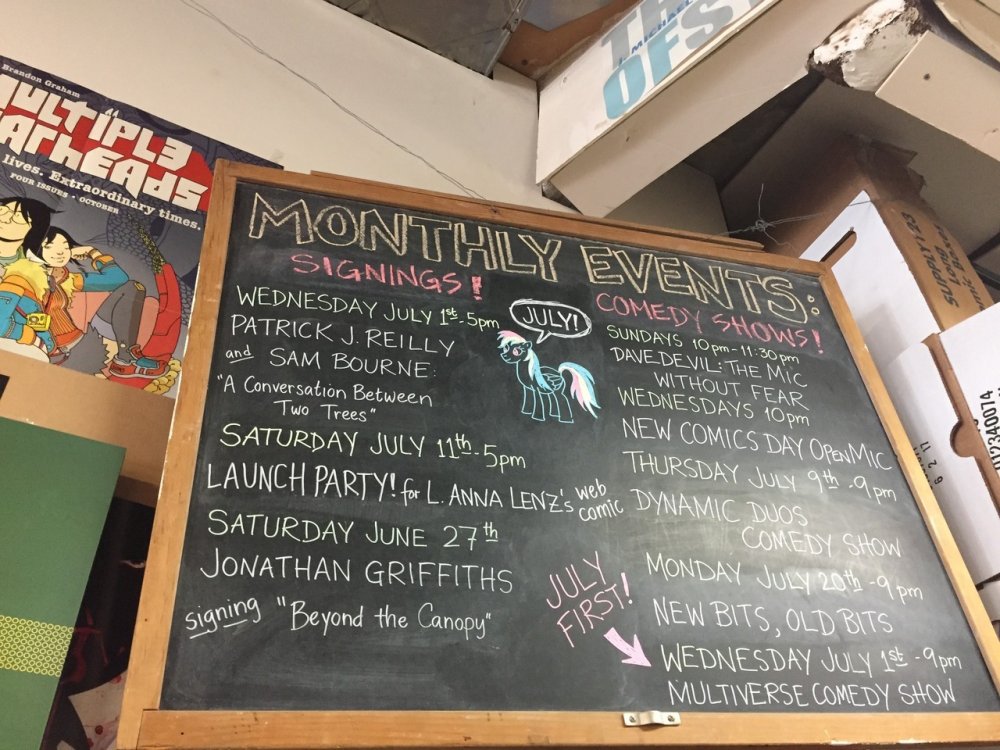 Brandon Graham
MULTiPLƎ
WARHEADS
lives. Extraordinary times.
FOUR ISSUES · OCTOBER
MICHAEL
OFS
MONTHLY EVENTS:
SIGNINGS!
WEDNESDAY JULY 1st - 5pm
PATRICK J. REILLY
and SAM BOURNE:
"A Conversation Between
Two Trees"
SATURDAY JULY 11th - 5pm
LAUNCH PARTY! for L. ANNA LENZ's web comic
SATURDAY JUNE 27th
JONATHAN GRIFFITHS
signing "Beyond the Canopy"
JULY!
COMEDY SHOWS!
SUNDAYS 10pm - 11:30pm
DAVE-DEVIL: THE MIC
WITHOUT FEAR
WEDNESDAYS 10pm
NEW COMICS DAY OPEN MIC
THURSDAY JULY 9th - 9pm
DYNAMIC DUOS
COMEDY SHOW
MONDAY JULY 20th - 9pm
NEW BITS, OLD BITS
JULY
FIRST!
WEDNESDAY JULY 1st - 9pm
MULTIVERSE COMEDY SHOW